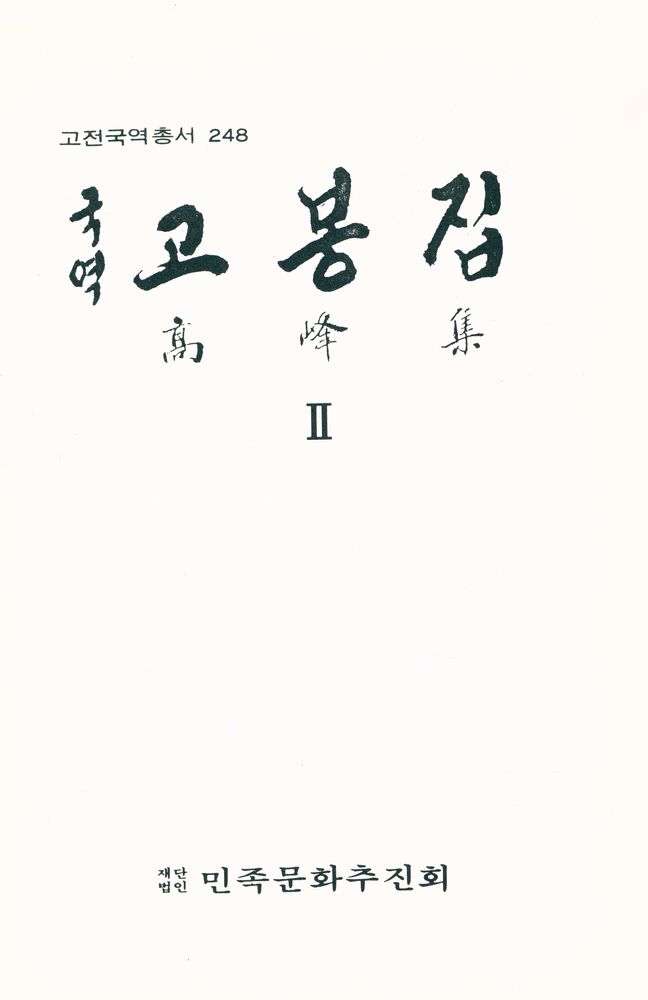 고전국역총서 248
국역 고봉집
高峰集
Ⅱ
재단법인 민족문화추진회